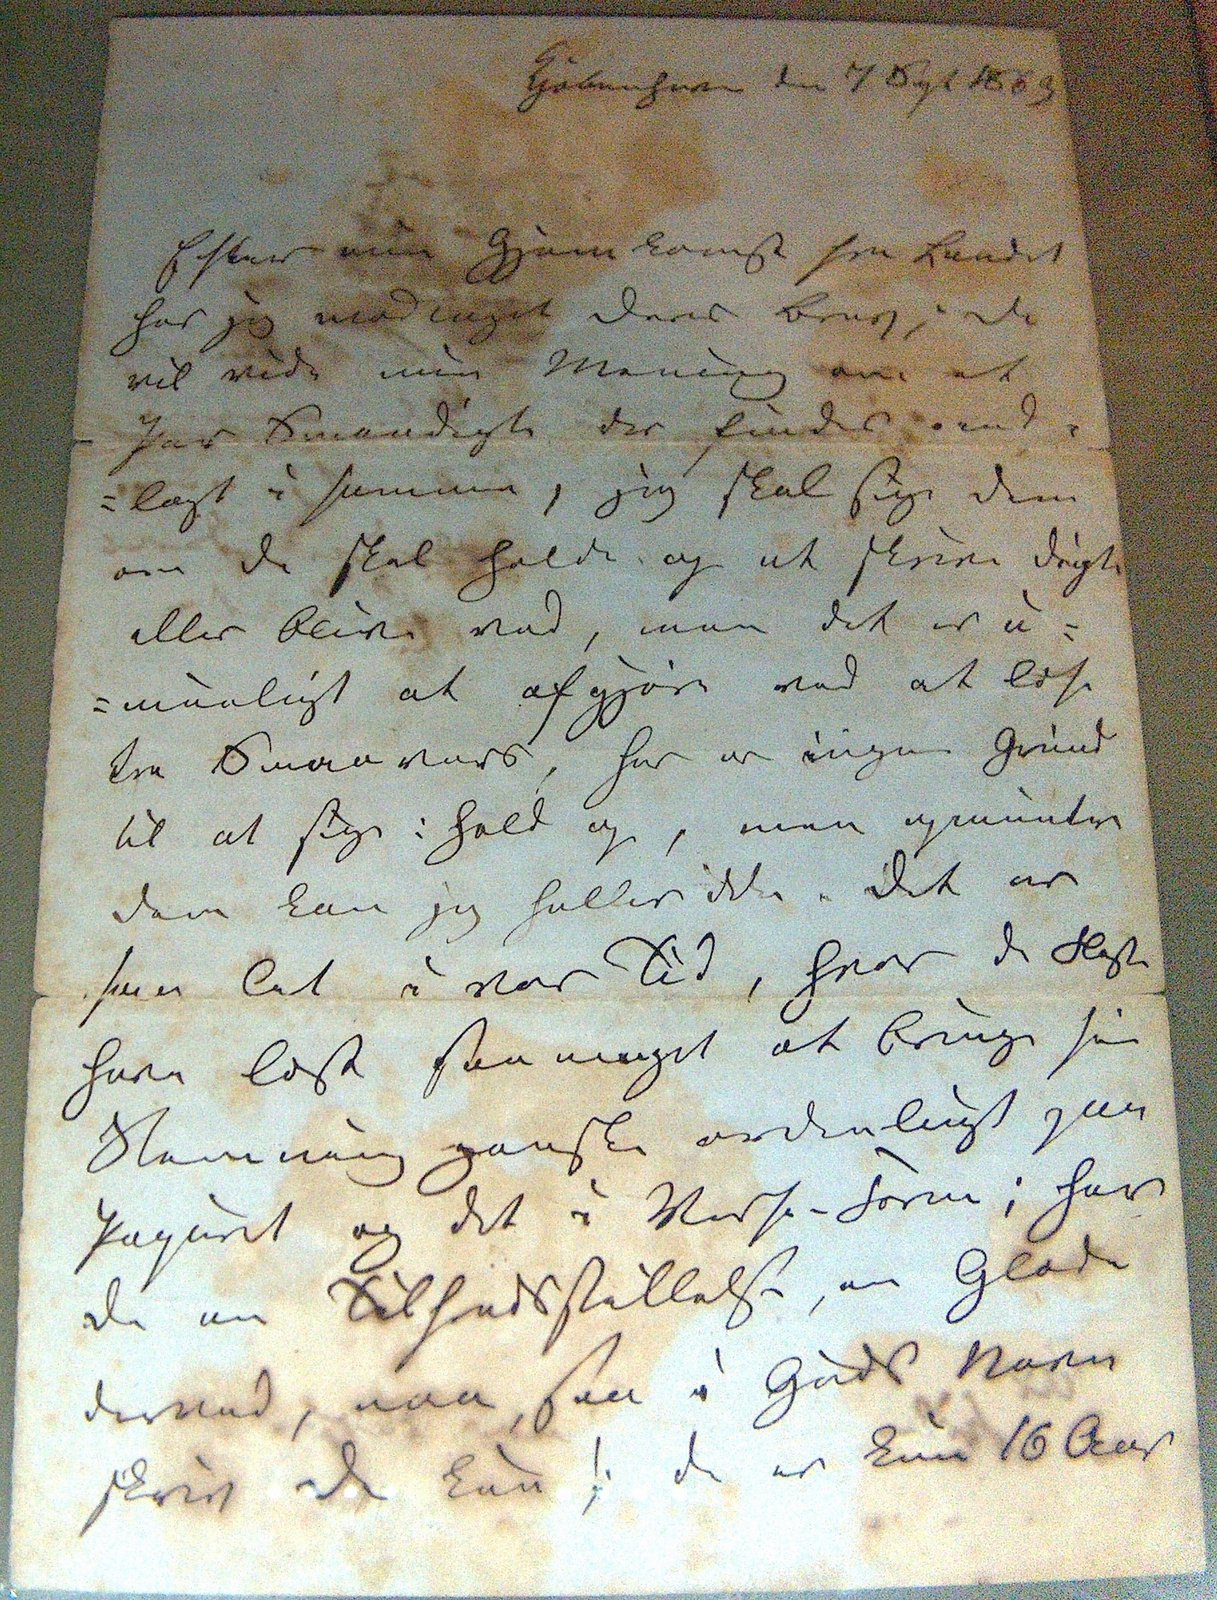 Kjøbenhavn den 7 Sept 1869
Efter min Hjemkomst fra Landet
har jeg modtaget Deres Brev; De
vil vide min Mening om et
Par Smaadigte der findes ind=
=lagt i samme, jeg skal sige dem
om De skal holde op at skrive Digte
eller blive ved, men det er u=
=mueligt at afgjøre ved at læse
tre Smaavers, her er ingen Grund
til at sige: hold op, men opmuntre
dem kan jeg heller ikke. Det er
saa let i vor Tid, hvor de fleste
have læst saa meget at bringe sin
Stemning ganske ordenligt paa
Papiret og det i Verse-Form; har
De en Tilfredsstillelse, en Glæde
derved, naa, saa i Guds Navn
skriv De kun! De er kun 16 Aar